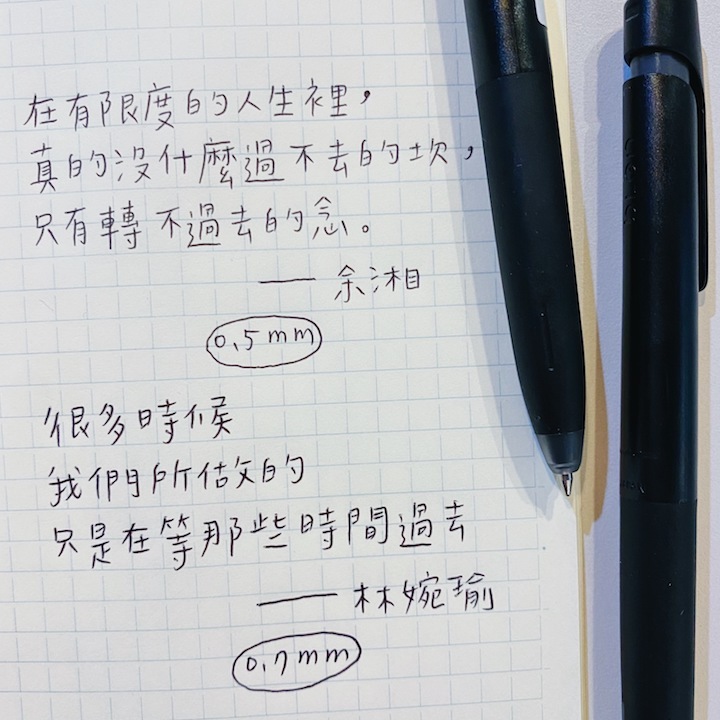 在有限度的人生裡，
真的沒什麼過不去的坎，
只有轉不過去的念。
—— 余湘
0.5mm
很多時候
我們所做的
只是在等那些時間過去
—— 林婉瑜
0.7mm